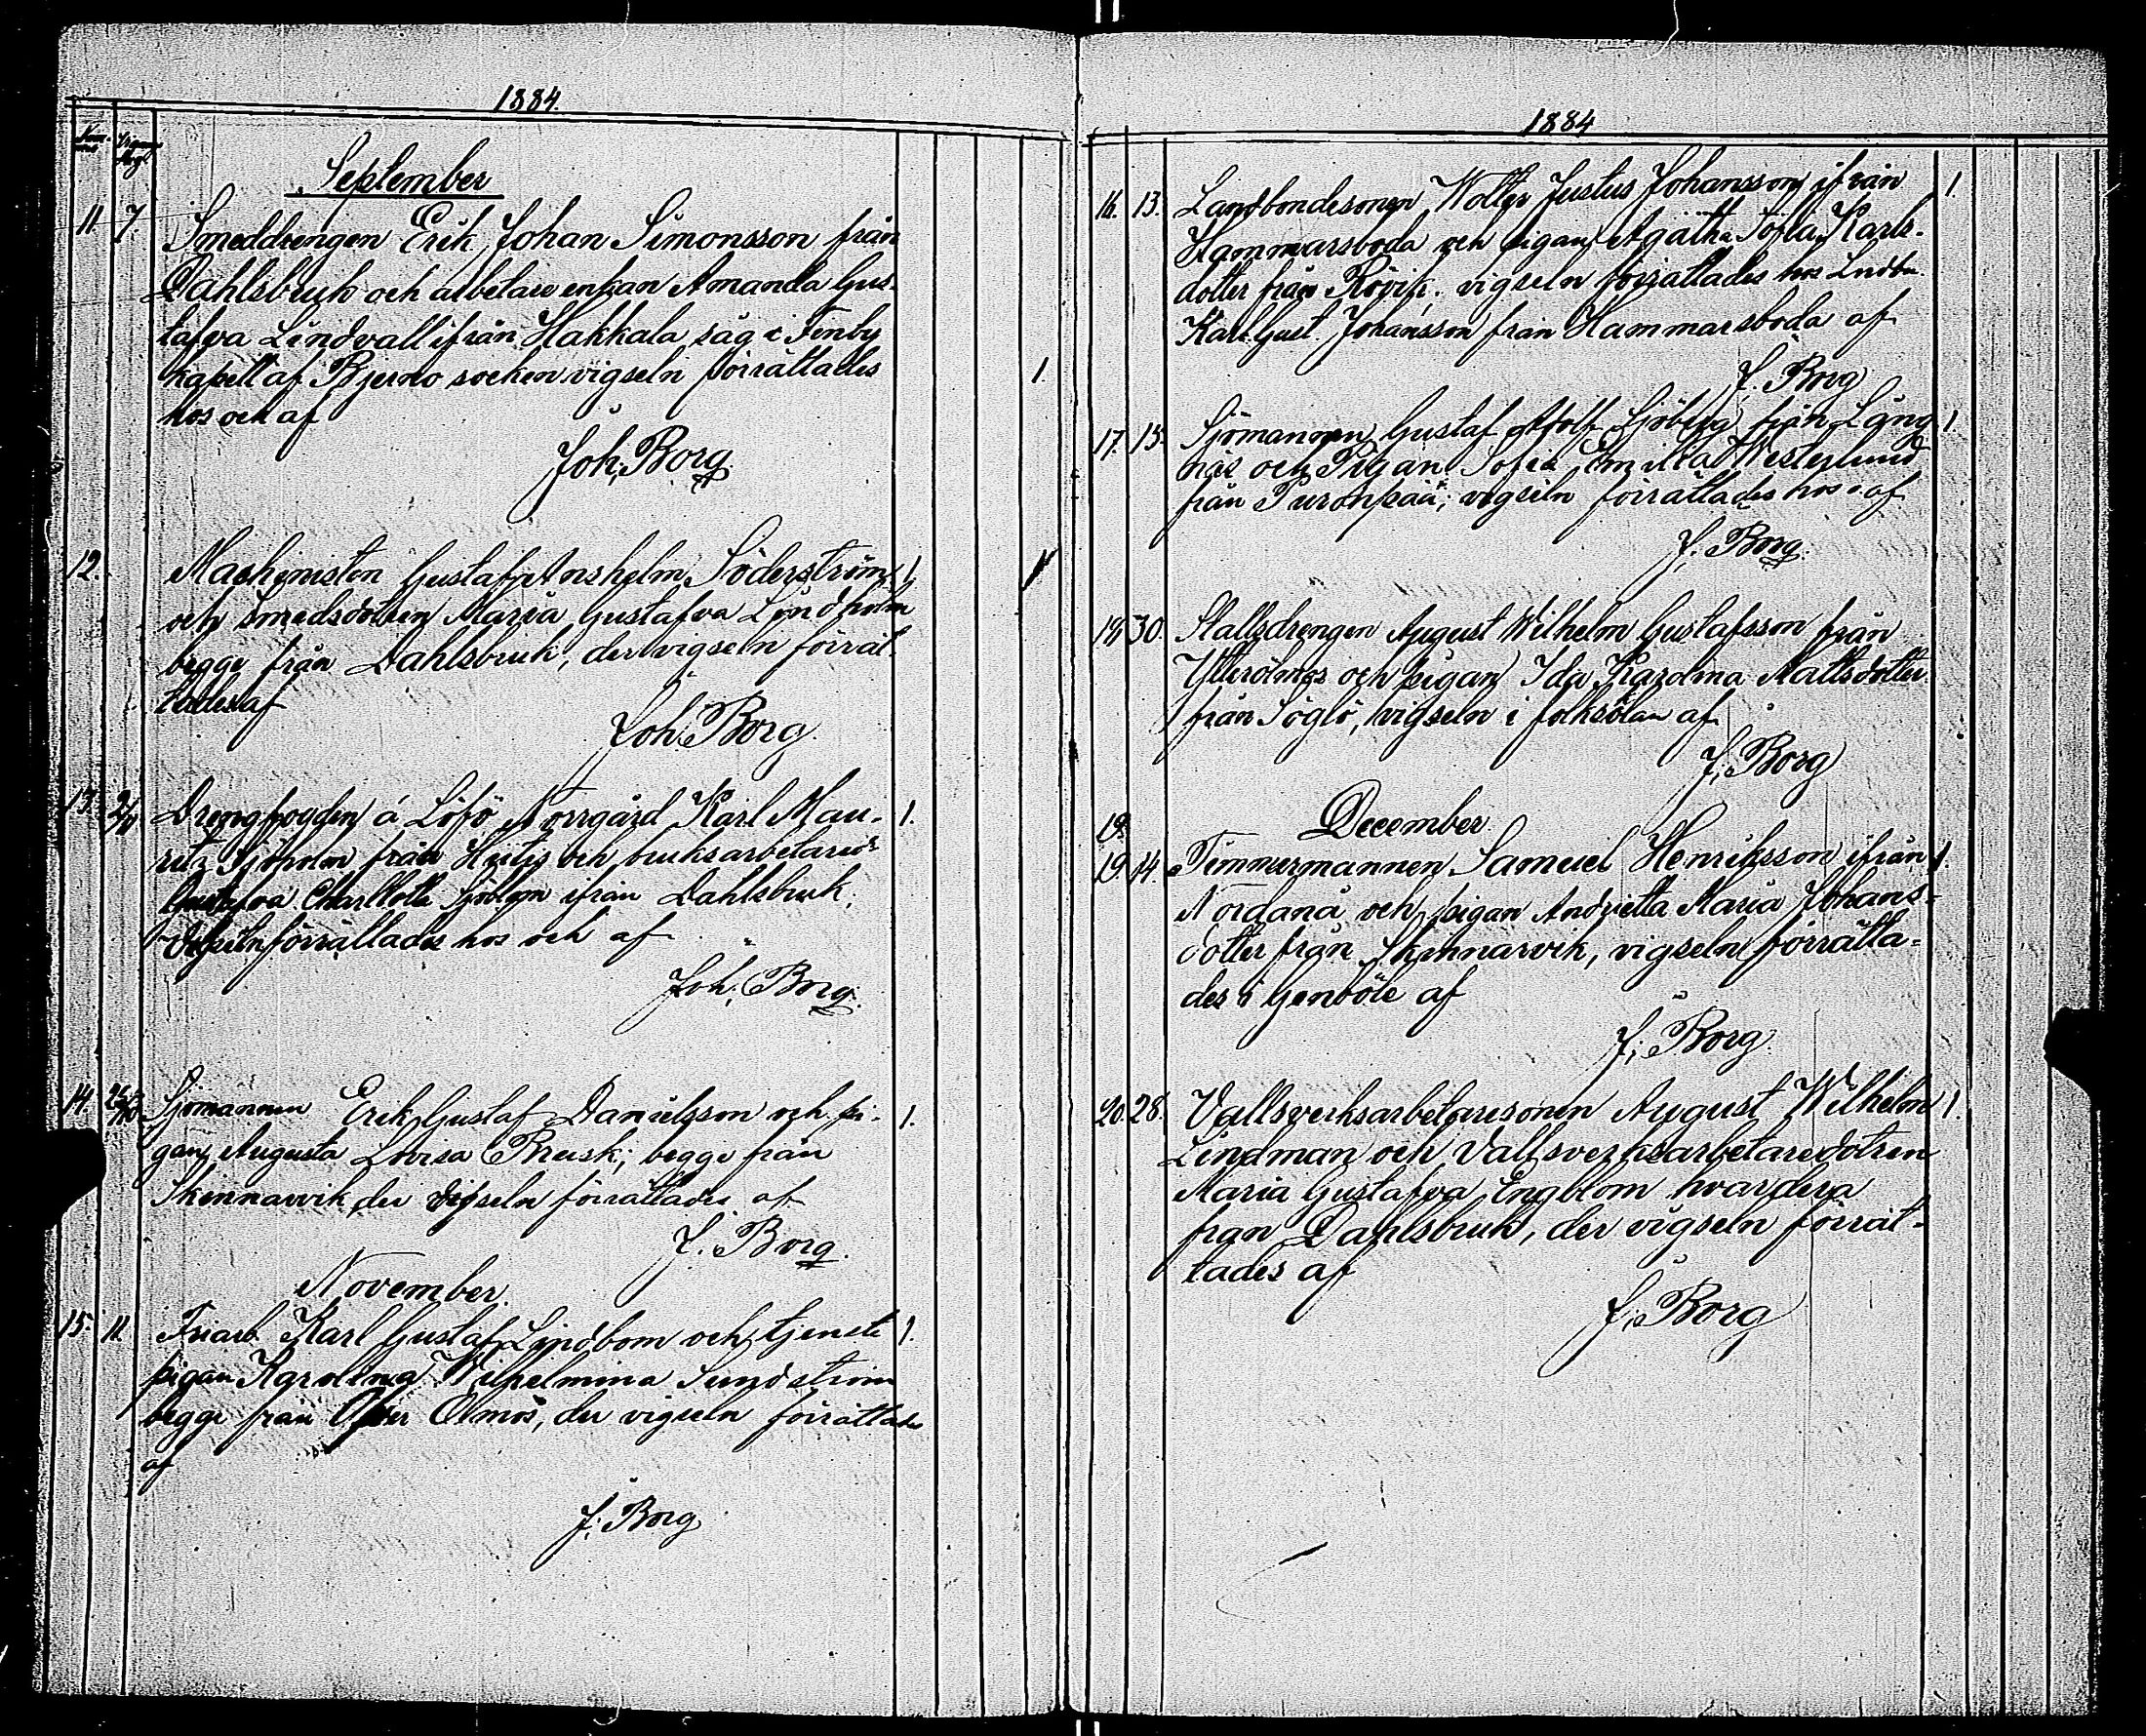 1884.
Num-
mer
Vigsel
dag
September
11. 7. Smeddrengen Erik Johan Simonsson från
Dahlsbruk och arbetare enkan Amanda Gus-
tafva Lindvall ifrån Hakkala såg i Finby
kapell af Bjerno socken vigseln förrättades
hos och af 1.
Joh. Borg.
12. Machinisten Gustaf Anshelm Söderström 1.
och smedsdottren Maria Gustafva Lindholm
begge från Dahlsbruk, der vigseln förrät-
tades af
Joh. Borg.
13. Drengfogden å Löfö Norrgård Karl Mau- 1.
ritz Sjöholm från Hitis och bruksarbetared:r
Gustafva Charllotta Sjöblom ifrån Dahlsbruk.
Vigseln förrättades hos och af
Joh. Borg.
14. Sjömannen Erik Gustaf Danielsson och pi- 1.
gan Augusta Lovisa Brusk; begge från
Skinnarvik der vigseln förrättades af
J. Borg.
November.
15. 11. Friarb. Karl Gustaf Lindbom och tjenste 1.
pigan Karolina Wilhelmina Sundström
begge från Öfver Ölmos, der vigseln förrättades
af
J. Borg
1884
16. 13. Landbondesonen Wolter Justus Johansson ifrån 1.
Hammarsboda och pigan Agatha Sofia Karls-
dotter från Rövik. vigseln förrättades hos Lndbn.
Karl Gust. Johansson från Hammarsboda af
J. Borg
17. 15. Sjömannen Gustaf Adolf Sjöberg från Lång 1.
näs och Pigan Sofia Emilia Westerlund
från Purunpää; vigseln förrättades hos o. af
J. Borg.
18. 30. Stallsdrengen August Wilhelm Gustafsson från
Ytterölmos och pigan Ida Karolina Mattsdotter
från Söglö, vigseln i folkskolan af
J. Borg
December.
19.
19. 14. Timmermannen Samuel Henriksson ifrån 1.
Nordanå och pigan Andrietta Maria Johans-
dotter från Skinnarvik, vigseln förrätta-
des i Genböle af
J. Borg.
20. 28. Vallsverksarbetaresonen August Wilhelm 1.
Lindman och Vallsverksarbetaredotren
Maria Gustafva Engblom hvardera
från Dahlsbruk, der vigseln förrät-
tades af
J. Borg